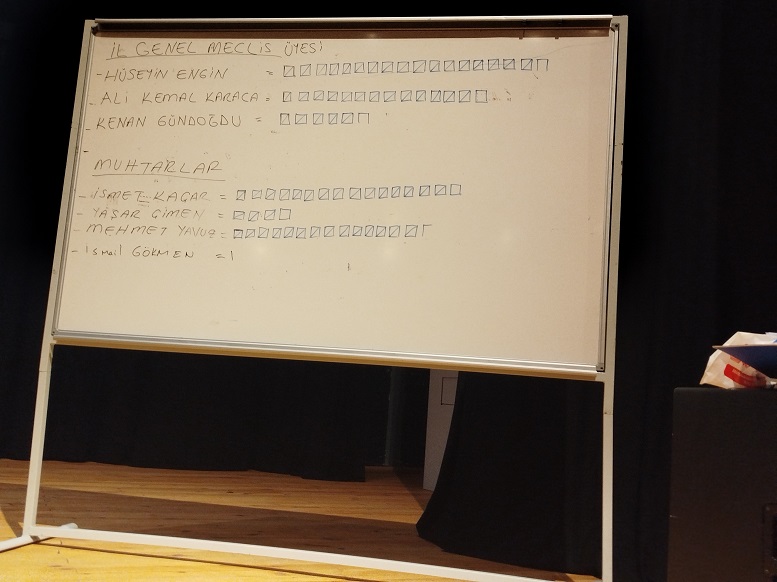 İL GENEL MECLİS ÜYESİ
- HÜSEYİN ENGİN =
- ALİ KEMAL KARACA =
- KENAN GÜNDOĞDU =
-
MUHTARLAR
- İSMET KAÇAR =
- YAŞAR ÇİMEN =
- MEHMET YAVUZ =
- İsmail GÖKMEN = I